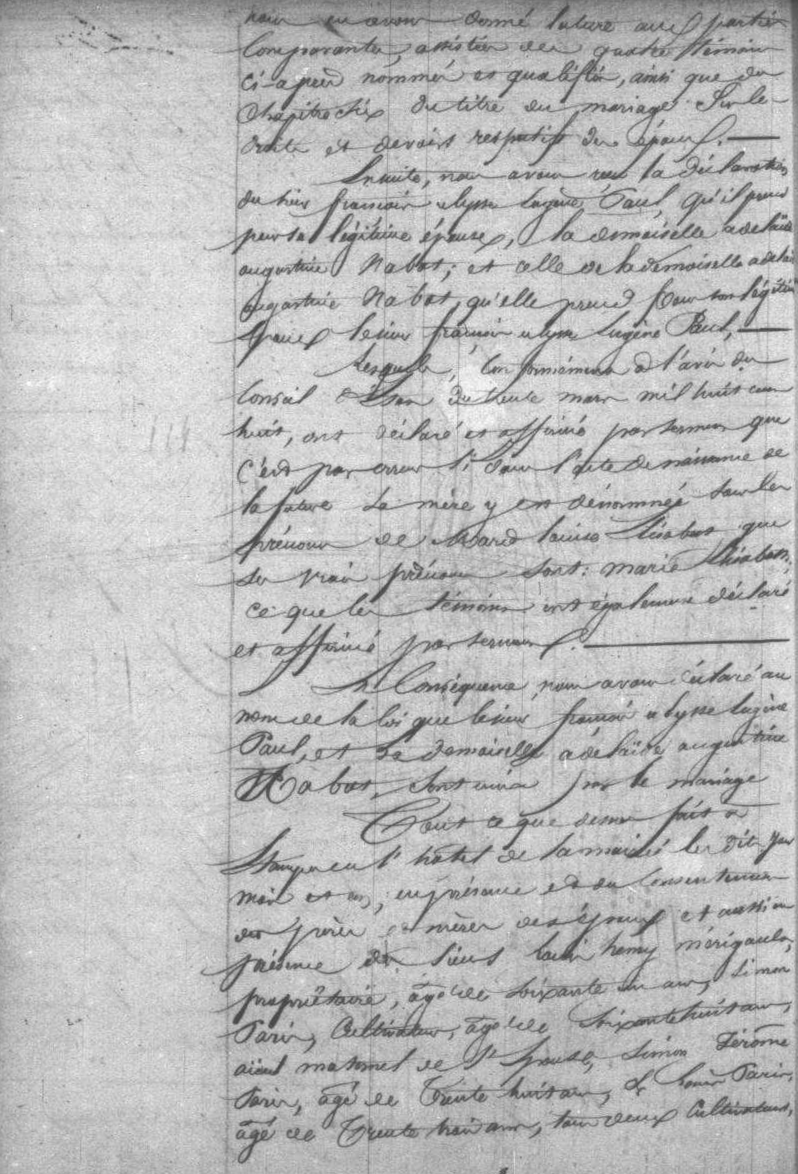 nous en avons donné lecture aux parties
Comparantes, assistées des quatre témoins
ci-après nommés et qualifiés, ainsi que du
Chapitre six du titre du mariage Sur les
droits et devoirs respectifs des époux.
Ensuite, nous avons reçu la déclaration
du sieur françois ulysse Eugène Paul, qu'il prend
pour sa légitime épouse, la demoiselle adelaïde
augustine Rabot; et celle de la demoiselle adelaïde
augustine Rabot, qu'elle prend pour son légitime
époux le sieur françois ulysse Eugène Paul,
Lesquels, Conformément à l'avis du
Conseil d'Etat du trente mars mil huit cent
huit, ont déclaré et affirmé par serment que
c'est par erreur si dans l'acte de naissance de
la future sa mère y est dénommée sous les
prénoms de Marie louise Elisabeth que
ses vrais prénoms sont: marie Elisabeth,
ce que les témoins ont également déclaré
et affirmé par serment.
En Conséquence, nous avons déclaré au
nom de la loi que le sieur françois ulysse Eugène
Paul, et la demoiselle adélaïde augustine
Rabot, sont unis par le mariage
Tout ce que dessus fait à
Etampes en l'hôtel de la mairie les dits jour
mois et an, en présence et du Consentement
des pères et mères des époux et aussi en
présence des sieurs louis henry mérigault,
propriétaire, âgé de soixante un ans, Simon
Paris, Cultivateur, âgé de soixante huit ans,
aieul maternel de l'Epouse, Simon Jérôme
Paris, âgé de trente huit ans, & louis Paris,
âgé de trente trois ans, tous deux Cultivateurs,